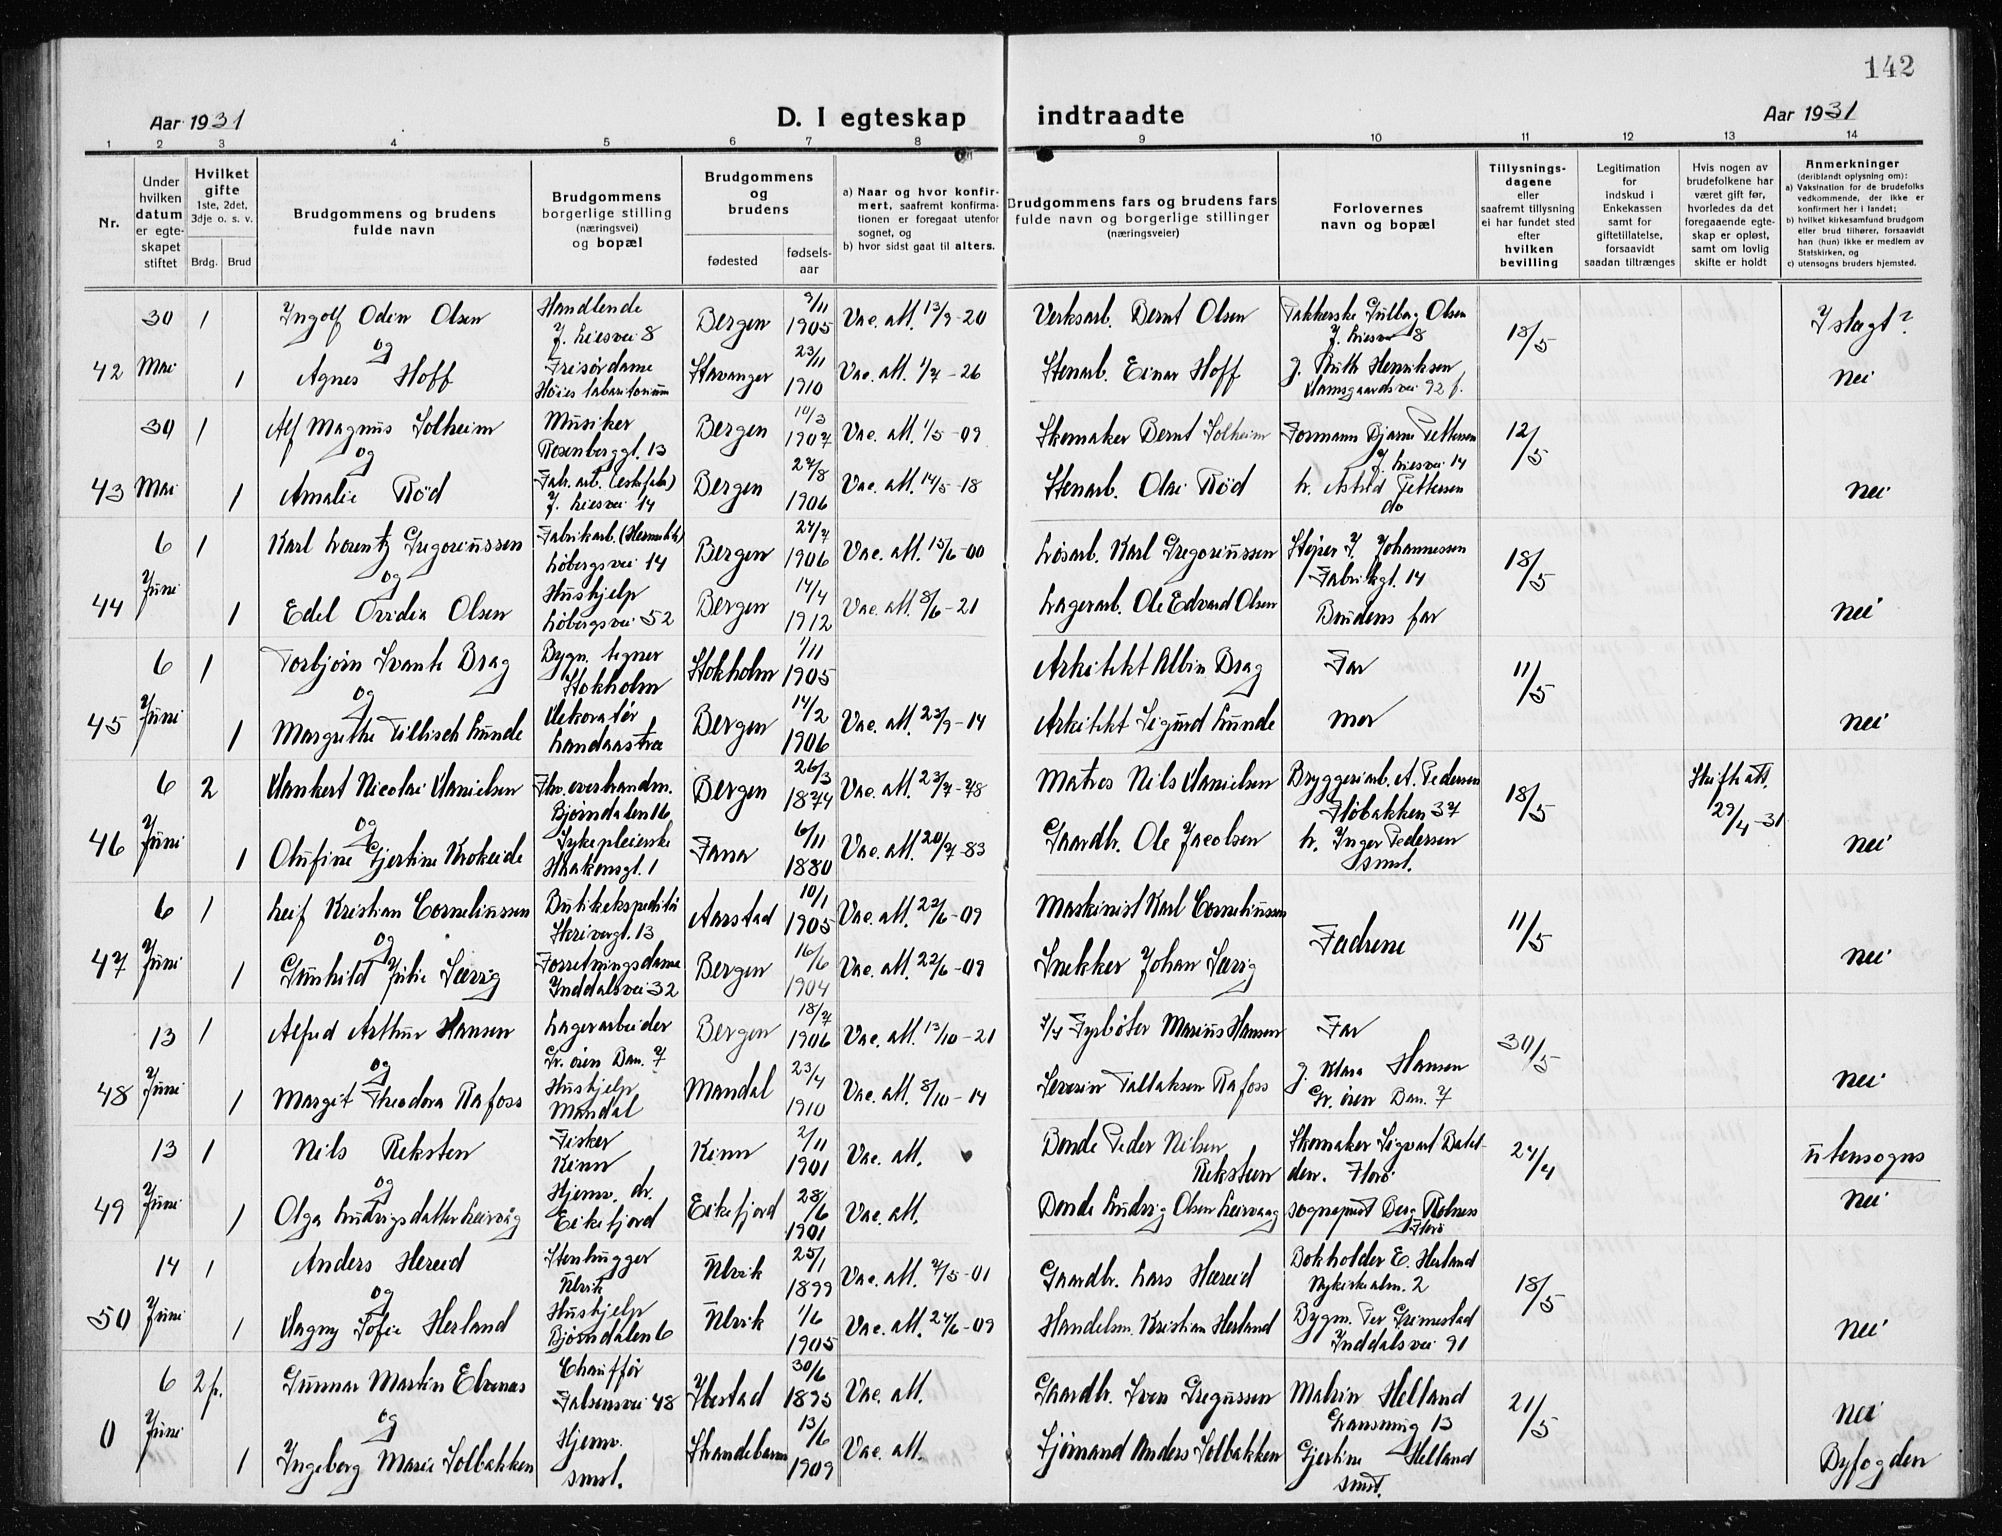 142
Aar 1931
D. I egteskap indtraadte
Aar 1931
1 2 3 4 5 6 7 8 9 10 11 12 13 14
Nr.
Under hvilken datum er egteskapet stiftet
Hvilket gifte 1ste, 2det, 3dje o. s. v.
Brdg. Brud
Brudgommens og brudens fulde navn
Brudgommens borgerlige stilling (næringsvei) og bopæl
Brudgommens og brudens
fødested
fødsels-aar
a) Naar og hvor konfirmert, saafremt konfirmationen er foregaat utenfor sognet, og
b) hvor sidst gaat til alters.
Brudgommens fars og brudens fars fulde navn og borgerlige stillinger (næringsveier)
Forlovernes navn og bopæl
Tillysningsdagene eller saafremt tillysning ei har fundet sted efter hvilken bevilling
Legitimation for indskud i Enkekassen samt for giftetillatelse, forsaavidt saadan tiltrænges
Hvis nogen av brudefolkene har været gift før, hvorledes da det foregaaende egteskap er opløst, samt om lovlig skifte er holdt
Anmerkninger (deriblandt oplysning om):
a) Vaksination for de brudefolks vedkommende, der ikke er konfirmert her i landet;
b) hvilket kirkesamfund brudgom eller brud tilhører, forsaavidt han (hun) ikke er medlem av Statskirken, og
c) utensogns bruders hjemsted.
30 1 Ingolf Odin Olsen Handlende J. Liesvei 8 Bergen 9/11 1905 Vac. att. 13/9-20 Verksarb. Bernt Olsen Pakkerske Gulborg Olsen J. Liesvei 8 18/5 I slegt?
og
42 Mai 1 Agnes Hoff Frisørdame Høies Stavanger 23/11 1910 Vac. att. 1/7-26 Stenarb. Einar Hoff g. Ruth Henriksen Damsgaardsvei 92 f. nei
30 1 Alf Magnus Solheim Musiker Rosenberggt. 13 Bergen 10/3 1907 Vac. att. 1/5-09 Skomaker Bernt Solheim Formann Bjarne Pettersen J. Liesvei 14 12/5
og
43 Mai 1 Amalie Rød Fabr. arb. J. Liesvei 14 Bergen 27/8 1906 Vac. att. 14/5-18 Stenarb. Olai Rød h. Astrid Pettersen do nei
6 1 Karl Lorentz Gregoriussen Fabrikarb. Løbergsvei 14 Bergen 27/7 1906 Vac. att. 15/6-00 Løsarb. Karl Gregoriussen Støper J. Johannessen Fabrikgt. 14 18/5
og
44 Juni 1 Edel Ovidia Olsen Hushjelp Løbergsvei 52 Bergen 14/4 1912 Vac. att. 8/6-21 Lagerarb. Ole Edvard Olsen Brudens far nei
6 1 Torbjørn Svante Brag Bygn. tegner Stokholm Stokholm 1/11 1905 Arkitekt Albin Brag Far 11/5
og
45 Juni 1 Margrethe Tillisch Lunde Dekoratør Landaastræ Bergen 14/2 1906 Vac. att. 23/9-14 Arkitekt Sigurd Lunde mor nei
6 2 Dankert Nicolai Danielsen Fhv. overhandm. Bjørndalen 16 Bergen 26/3 1874 Vac. att. 23/7-78 Matros Nils Danielsen Bryggeriarb. A. Pedersen Fløbakken 37 18/5 Skifte att. 29/4-31
og
46 Juni 1 Olufine Gjertine Krokeide Sykepleierske Haakonsgt. 1 Fana 6/11 1880 Vac. att. 20/7-83 Gaardbr. Ole Jacobsen h. Inger Pedersen smst. nei
6 1 Leif Kristian Corneliussen Butikekspeditør Skrivergt. 13 Aarstad 10/1 1905 Vac. att. 22/6-09 Maskinist Karl Corneliussen Fædrene 11/5
og
47 Juni 1 Gunhild Julie Særvig Forretningsdame Inddalsvei 32 Bergen 16/6 1904 Vac. att. 22/6-09 Snekker Johan Særvig nei
13 1 Alfred Arthur Hansen Lagerarbeider Gr. øren Dam. 7 Bergen 18/7 1906 Vac. att. 13/10-21 Fyrbøter Marius Hansen Far 30/5
og
48 Juni 1 Margit Theodora Rafoss Hushjelp Mandal Mandal 23/4 1910 Vac. att. 8/10-14 Severin Tallaksen Rafoss g. Klara Hansen Gr. øren Dam. 7 nei
13 1 Nils Reksten Fisker Kinn Kinn 2/11 1901 Vac. att. Bonde Peder Nilsen Reksteen Skomaker Sigvart Florø 24/4 utensogns
og
49 Juni 1 Olga Ludvigsdatter Leirvåg Hjemv. dr. Eikefjord Eikefjord 28/6 1901 Vac. att. Bonde Ludvig Olsen Leirvaag sogneprest Berg Florø nei
14 1 Anders Hereid Stenhugger Ulvik Ulvik 25/1 1899 Vac. att. 7/5-01 Gaardbr. Lars Hæreid Bokholder E. Herland Nykirkealm. 2 18/5
og
50 Juni 1 Dagny Sofie Herland Hushjelp Bjørndalen 6 Ulvik 1/6 1905 Vac. att. 24/6-09 Handelsm. Kristian Herland Bygm. Per Grimestad Inddalsvei 91 nei
6 2 f. Gunnar Martin Elvenes Chauffør Falsensvei 48 Ibestad 30/6 1895 Vac. att. Gaardbr. Sven Gregussen Malvin Helland 13 21/5 nei
og
0 Juni 1 Ingeborg Marie Solbakken Hjemv. smst. Strandebarm 13/6 1909 Vac. att. Sjømand Anders Solbakken Gjertine Helland smst. Byfogden